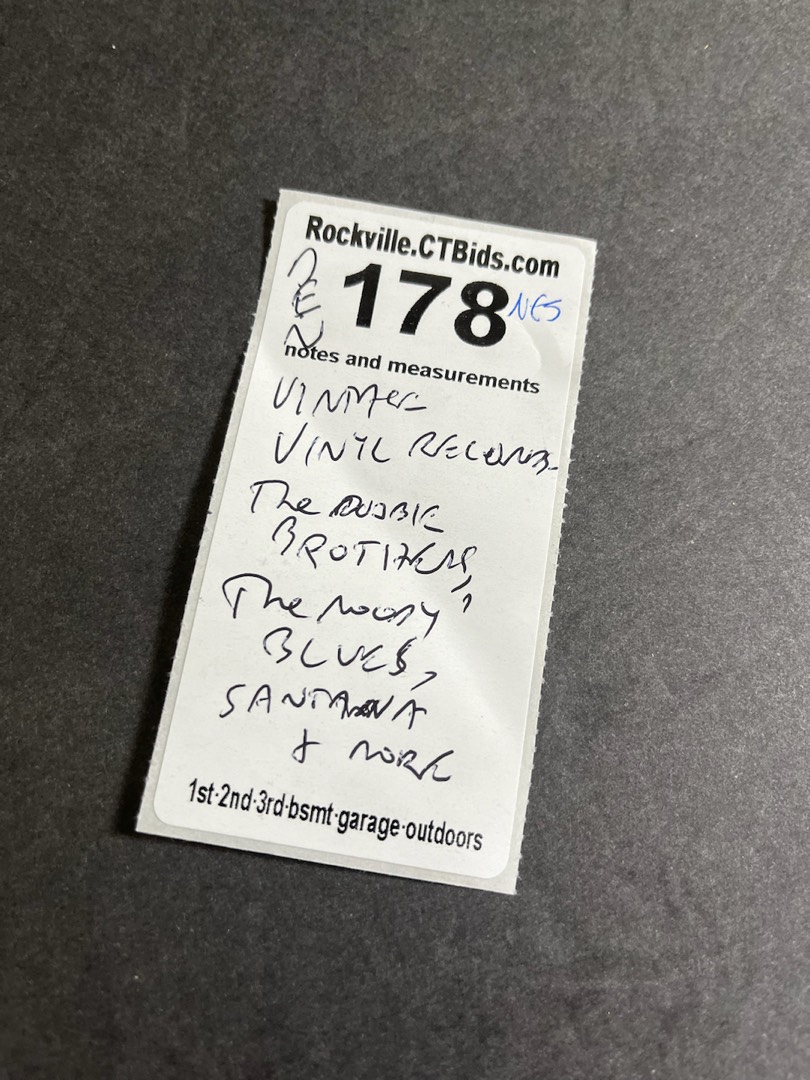 Rockville.CTBids.com
178 NES
notes and measurements
VINTAGE
VINYL RECORDS
The DOOBIE
BROTHERS,
The MOODY
BLUES,
SANTANA
& MORE
1st·2nd·3rd·bsmt·garage·outdoors